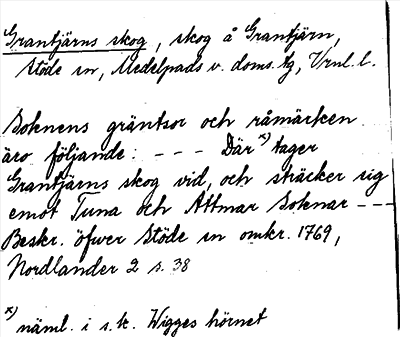 Grantjärns skog, skog å Grantjärn,
Stöde sn, Medelpads v. doms. tg, Vrnl. l.
Soknens gräntsor och råmärken
äro följande: - - - Där x) tager
Grantjärns skog vid, och sträcker sig
emot Tuna och Attmar Soknar - - -
Beskr. öfwer Stöde sn omkr. 1769,
Nordlander 2 s. 38
x) näml. i s. k. Wigges hörnet